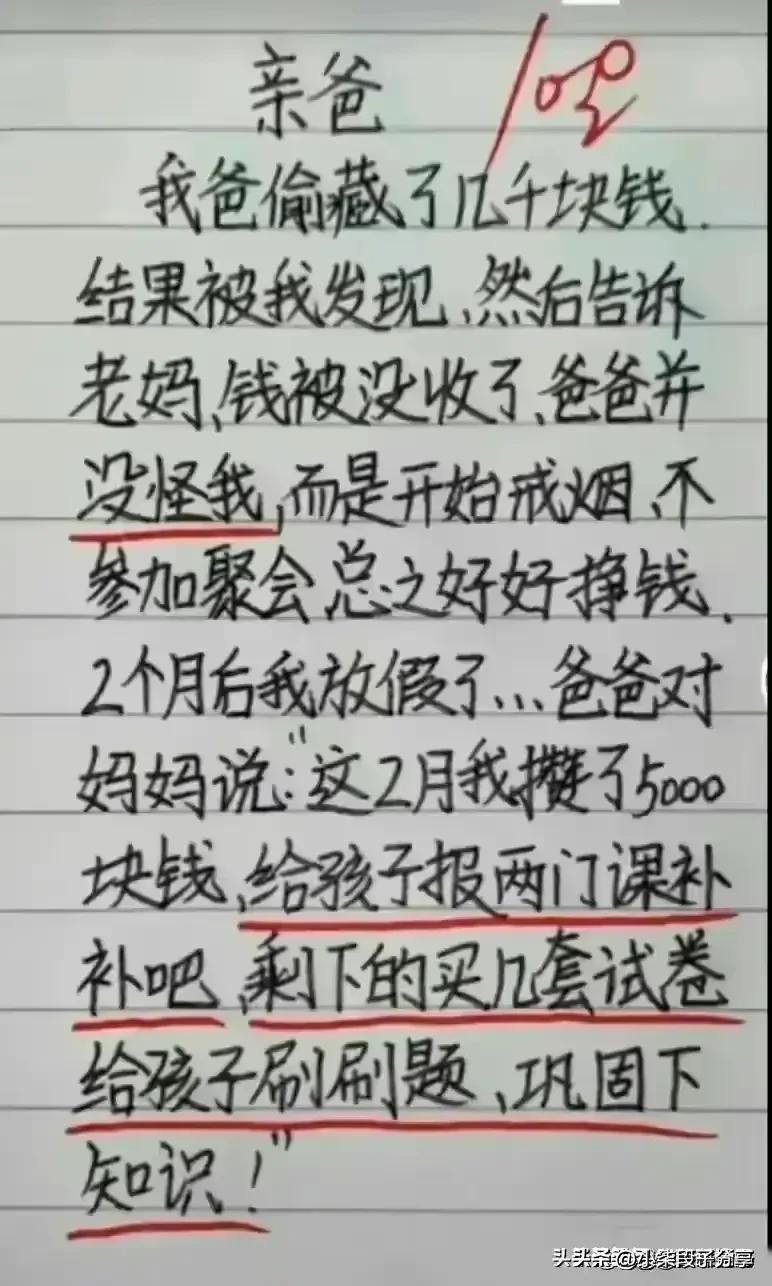 亲爸
我爸偷藏了几千块钱.
结果被我发现、然后告诉
老妈、钱被没收了、爸爸并
没怪我,而是开始戒烟、不
参加聚会总之好好挣钱.
2个月后我放假了...爸爸对
妈妈说:"这2月我攒了5000
块钱、给孩子报两门课补
补吧、剩下的买几套试卷
给孩子刷刷题、巩固下
知识!"